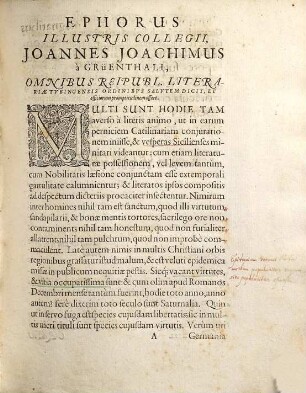 EPHORUS
ILLUSTRIS COLLEGII,
JOANNES JOACHIMUS
à GRüENTHALL,
OMNIBUS REIPUBL. LITERA-
RIÆ TVBINGENSIS ORDINIBVS SALVTEM DICIT, ET
MULTI SUNT HODIE TAM
averso à literis animo, ut in earum
perniciem Catilinariam conjuratio-
nem iniisse, & vesperas Sicilienses mi-
nitari videantur: cum etiam literatu-
ræ possessionem, vel levem tantum,
cum Nobilitatis læsione conjunctam esse extemporali
garrulitate calumnientur; & literatos ipsos compositis
ad despectum dicteriis procaciter insectentur. Nimirum
inter homines nihil tam est sanctum, quod illi virtutum
sandapilarii, & bonæ mentis tortores, sacrilego ore non
contaminent: nihil tam honestum, quod non furialiter
allatrent: nihil tam pulchrum, quod non improbè com-
maculent. Latè autem nimis in multis Christiani orbis
regionibus grassatur istud malum, & est veluti epidemica
mihi in publicum nequitiæ pestis. Sic & vacant virtutes,
& vitia occupatissima sunt: & cum olim apud Romanos
Decembri mense tantum fuerint, hodie toto anno, anno
autem ferè dixerim toto seculo sunt Saturnalia. Quin
ut in servo fuga est species cujusdam libertatis: ite in mul-
tis sunt species cujusdam virtutis. Verùm uti
A
Germania